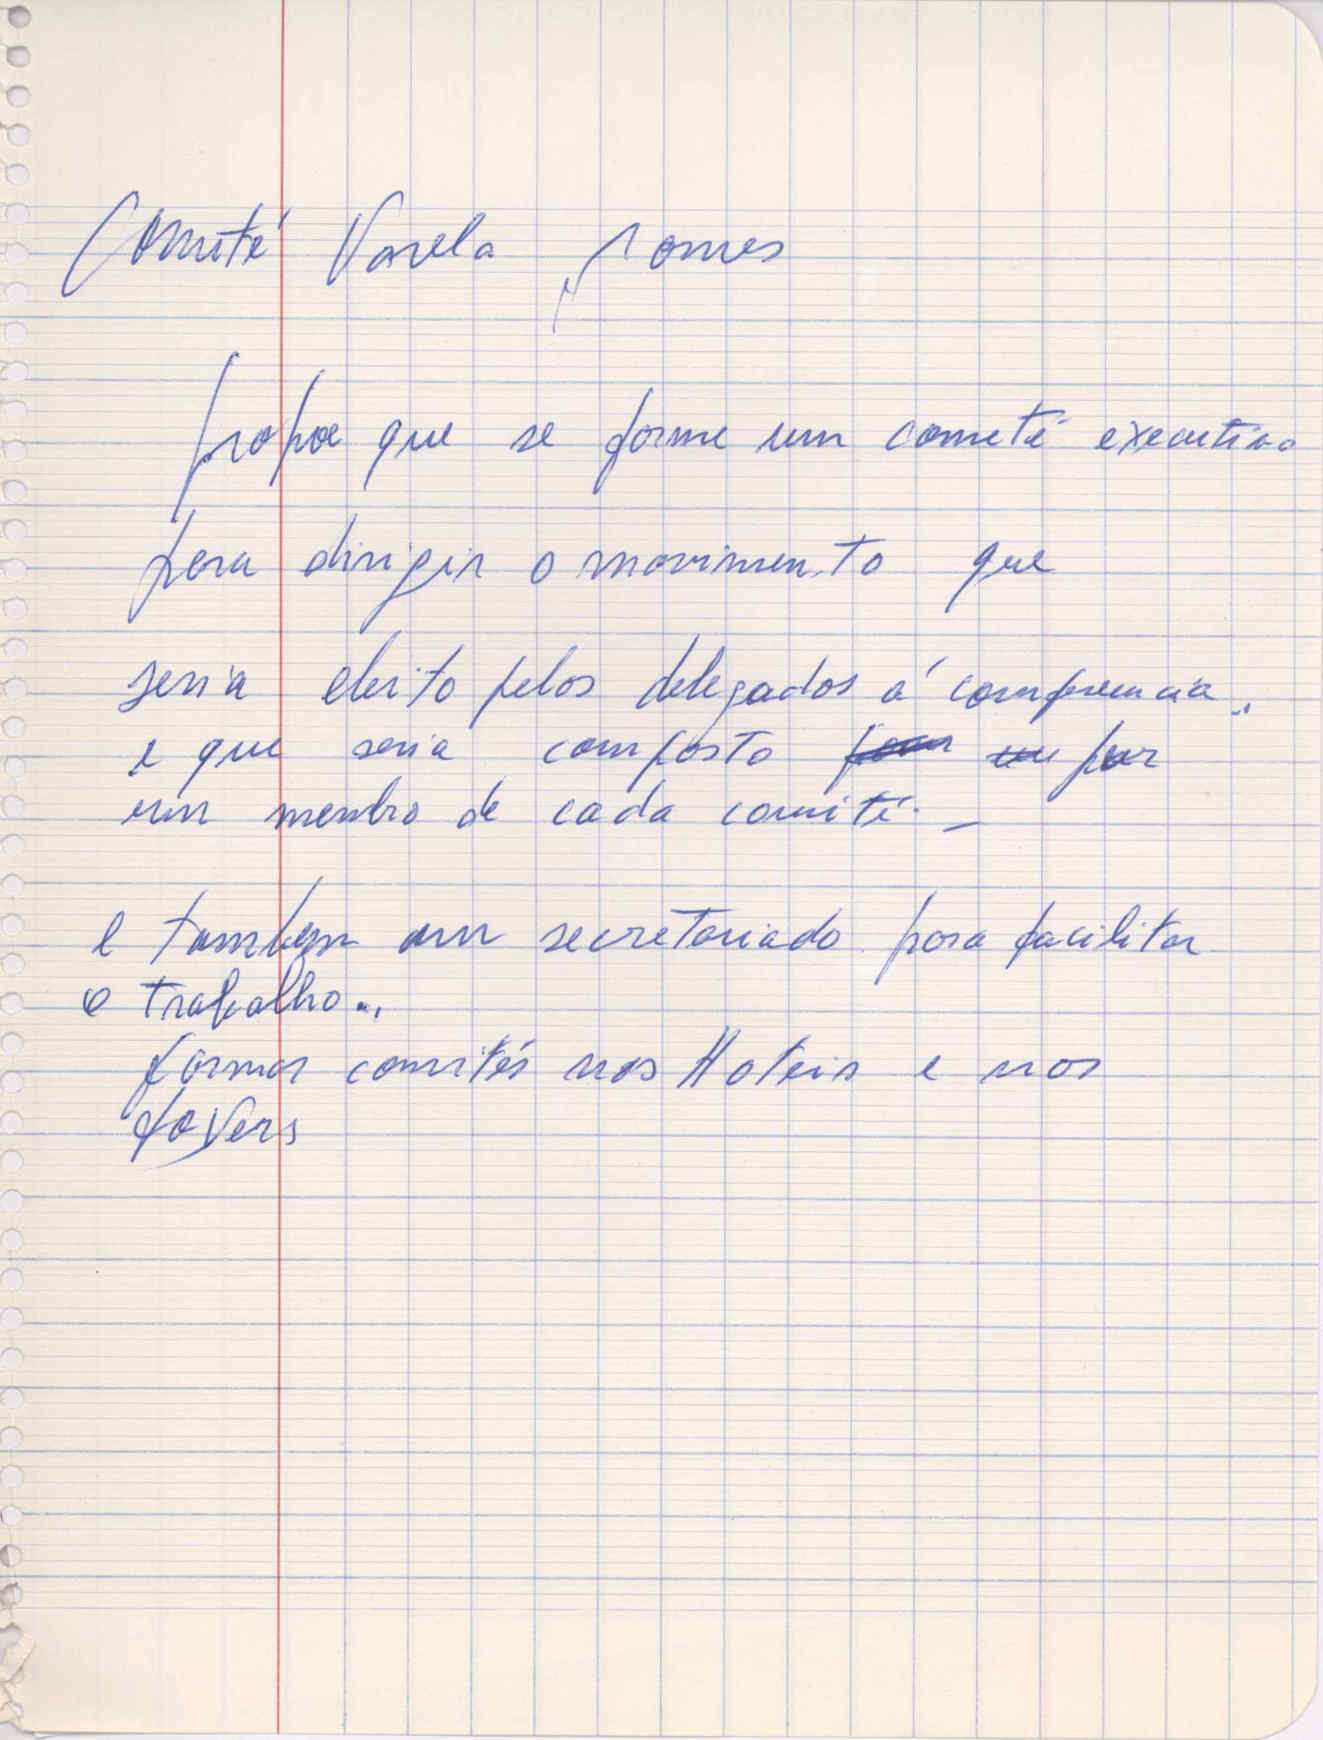 Comité Varela Gomes
propoe que se forme um cometé executivo
para dirigir o movimento que
seria eleito pelos delegados á comfrencia.
e que seria composto por
um membro de cada comité. –
e tambem um secretariado para facilitar
o trabalho..
formar comités nos Hoteis e nos
foyers